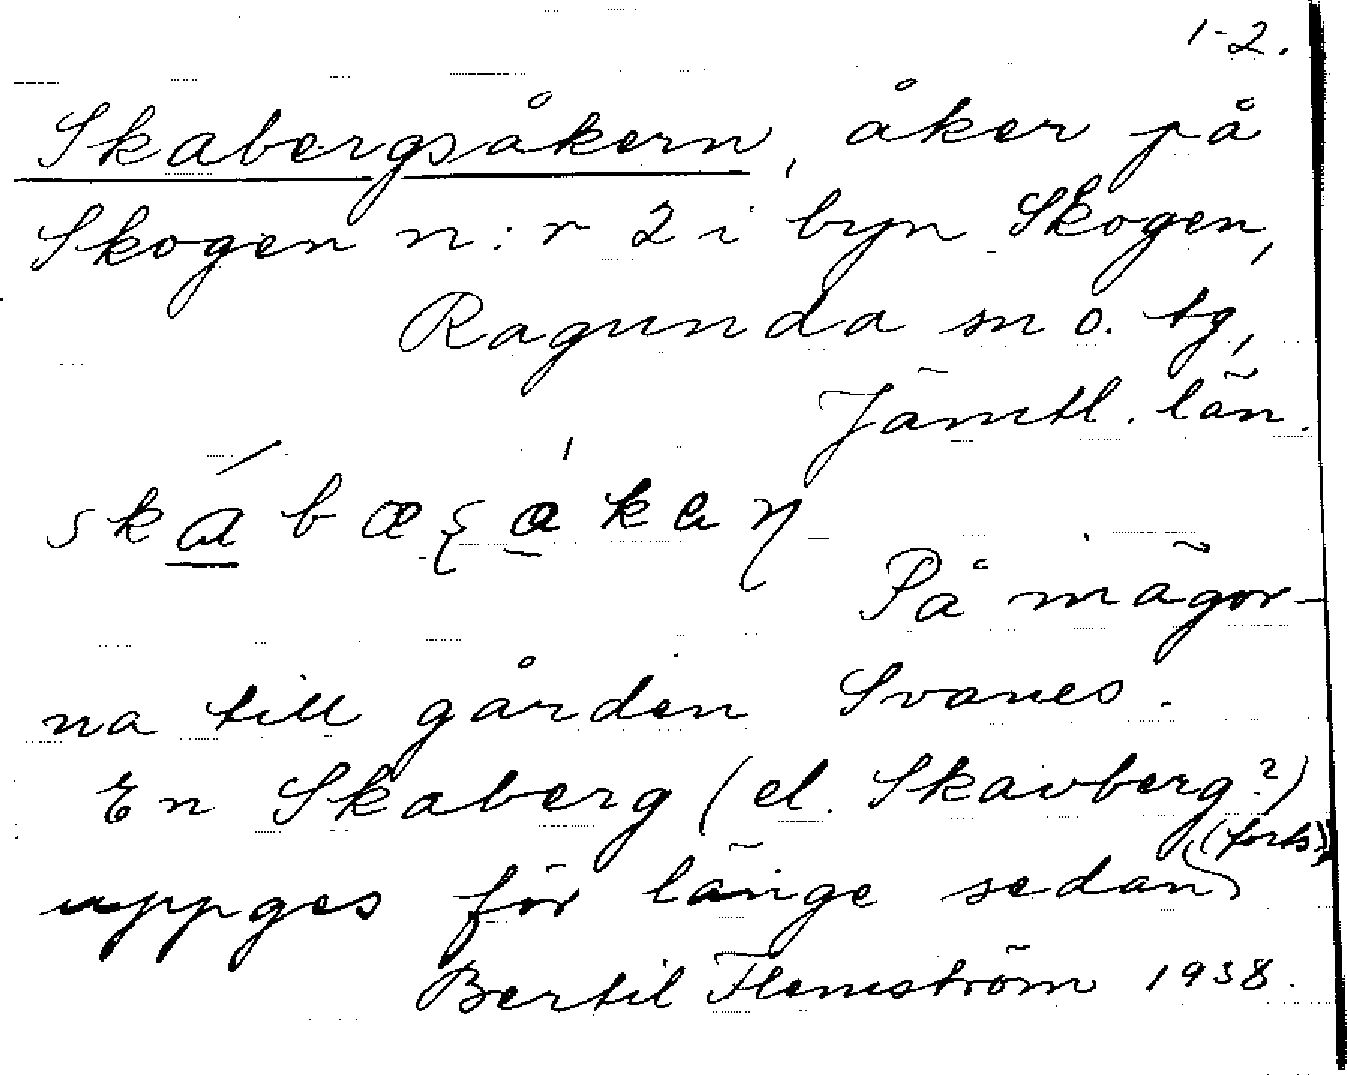 1-2.
Skabergsåkern, åker på
Skogen n:r 2 i byn Skogen,
Ragunda sn o. tg,
Jämtl. län.
På mågor-
na till gården Svanes.
En Skaberg (el. Skavberg?)
uppges för länge sedan (forts)
Bertil Flemström 1938.